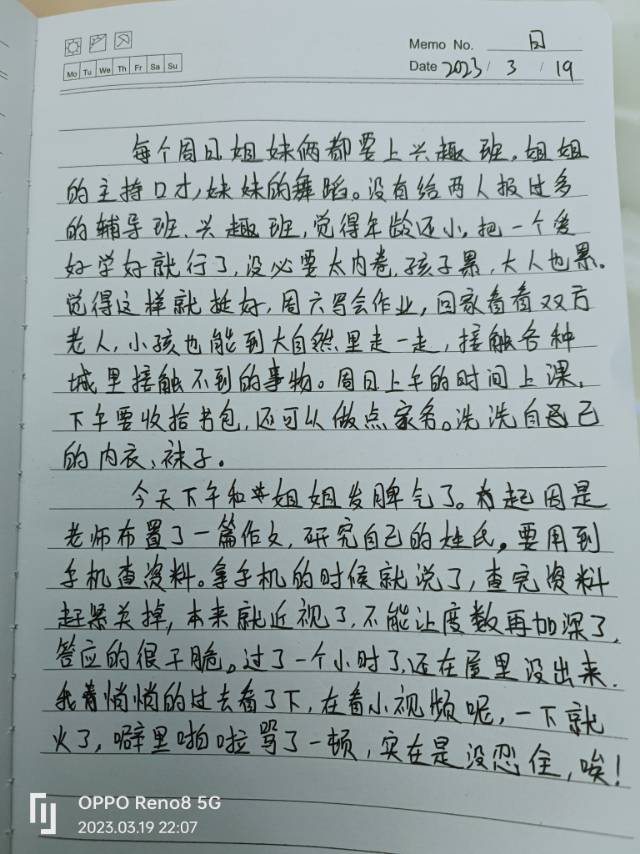 Memo No. 日
Mo Tu We Th Fr Sa Su
Date 2023 / 3 / 19
每个周日姐妹俩都要上兴趣班,姐姐
的主持口才,妹妹的舞蹈。没有给两人报过多
的辅导班、兴趣班,觉得年龄还小,把一个爱
好学好就行了,没必要太内卷,孩子累,大人也累。
觉得这样就挺好,周六写会作业,回家看看双方
老人,小孩也能到大自然里走一走,接触各种
城里接触不到的事物。周日上午的时间上课,
下午要收拾书包,还可以做点家务。洗洗自己
的内衣、袜子。
今天下午和姐姐发脾气了。起因是
老师布置了一篇作文,研究自己的姓氏。要用到
手机查资料。拿手机的时候就说了,查完资料
赶紧关掉,本来就近视了,不能让度数再加深了,
答应的很干脆。过了一个小时了,还在屋里没出来,
我悄悄的过去看了下,在看小视频呢,一下就
火了,噼里啪啦骂了一顿,实在是没忍住,唉!
OPPO Reno8 5G
2023.03.19 22:07